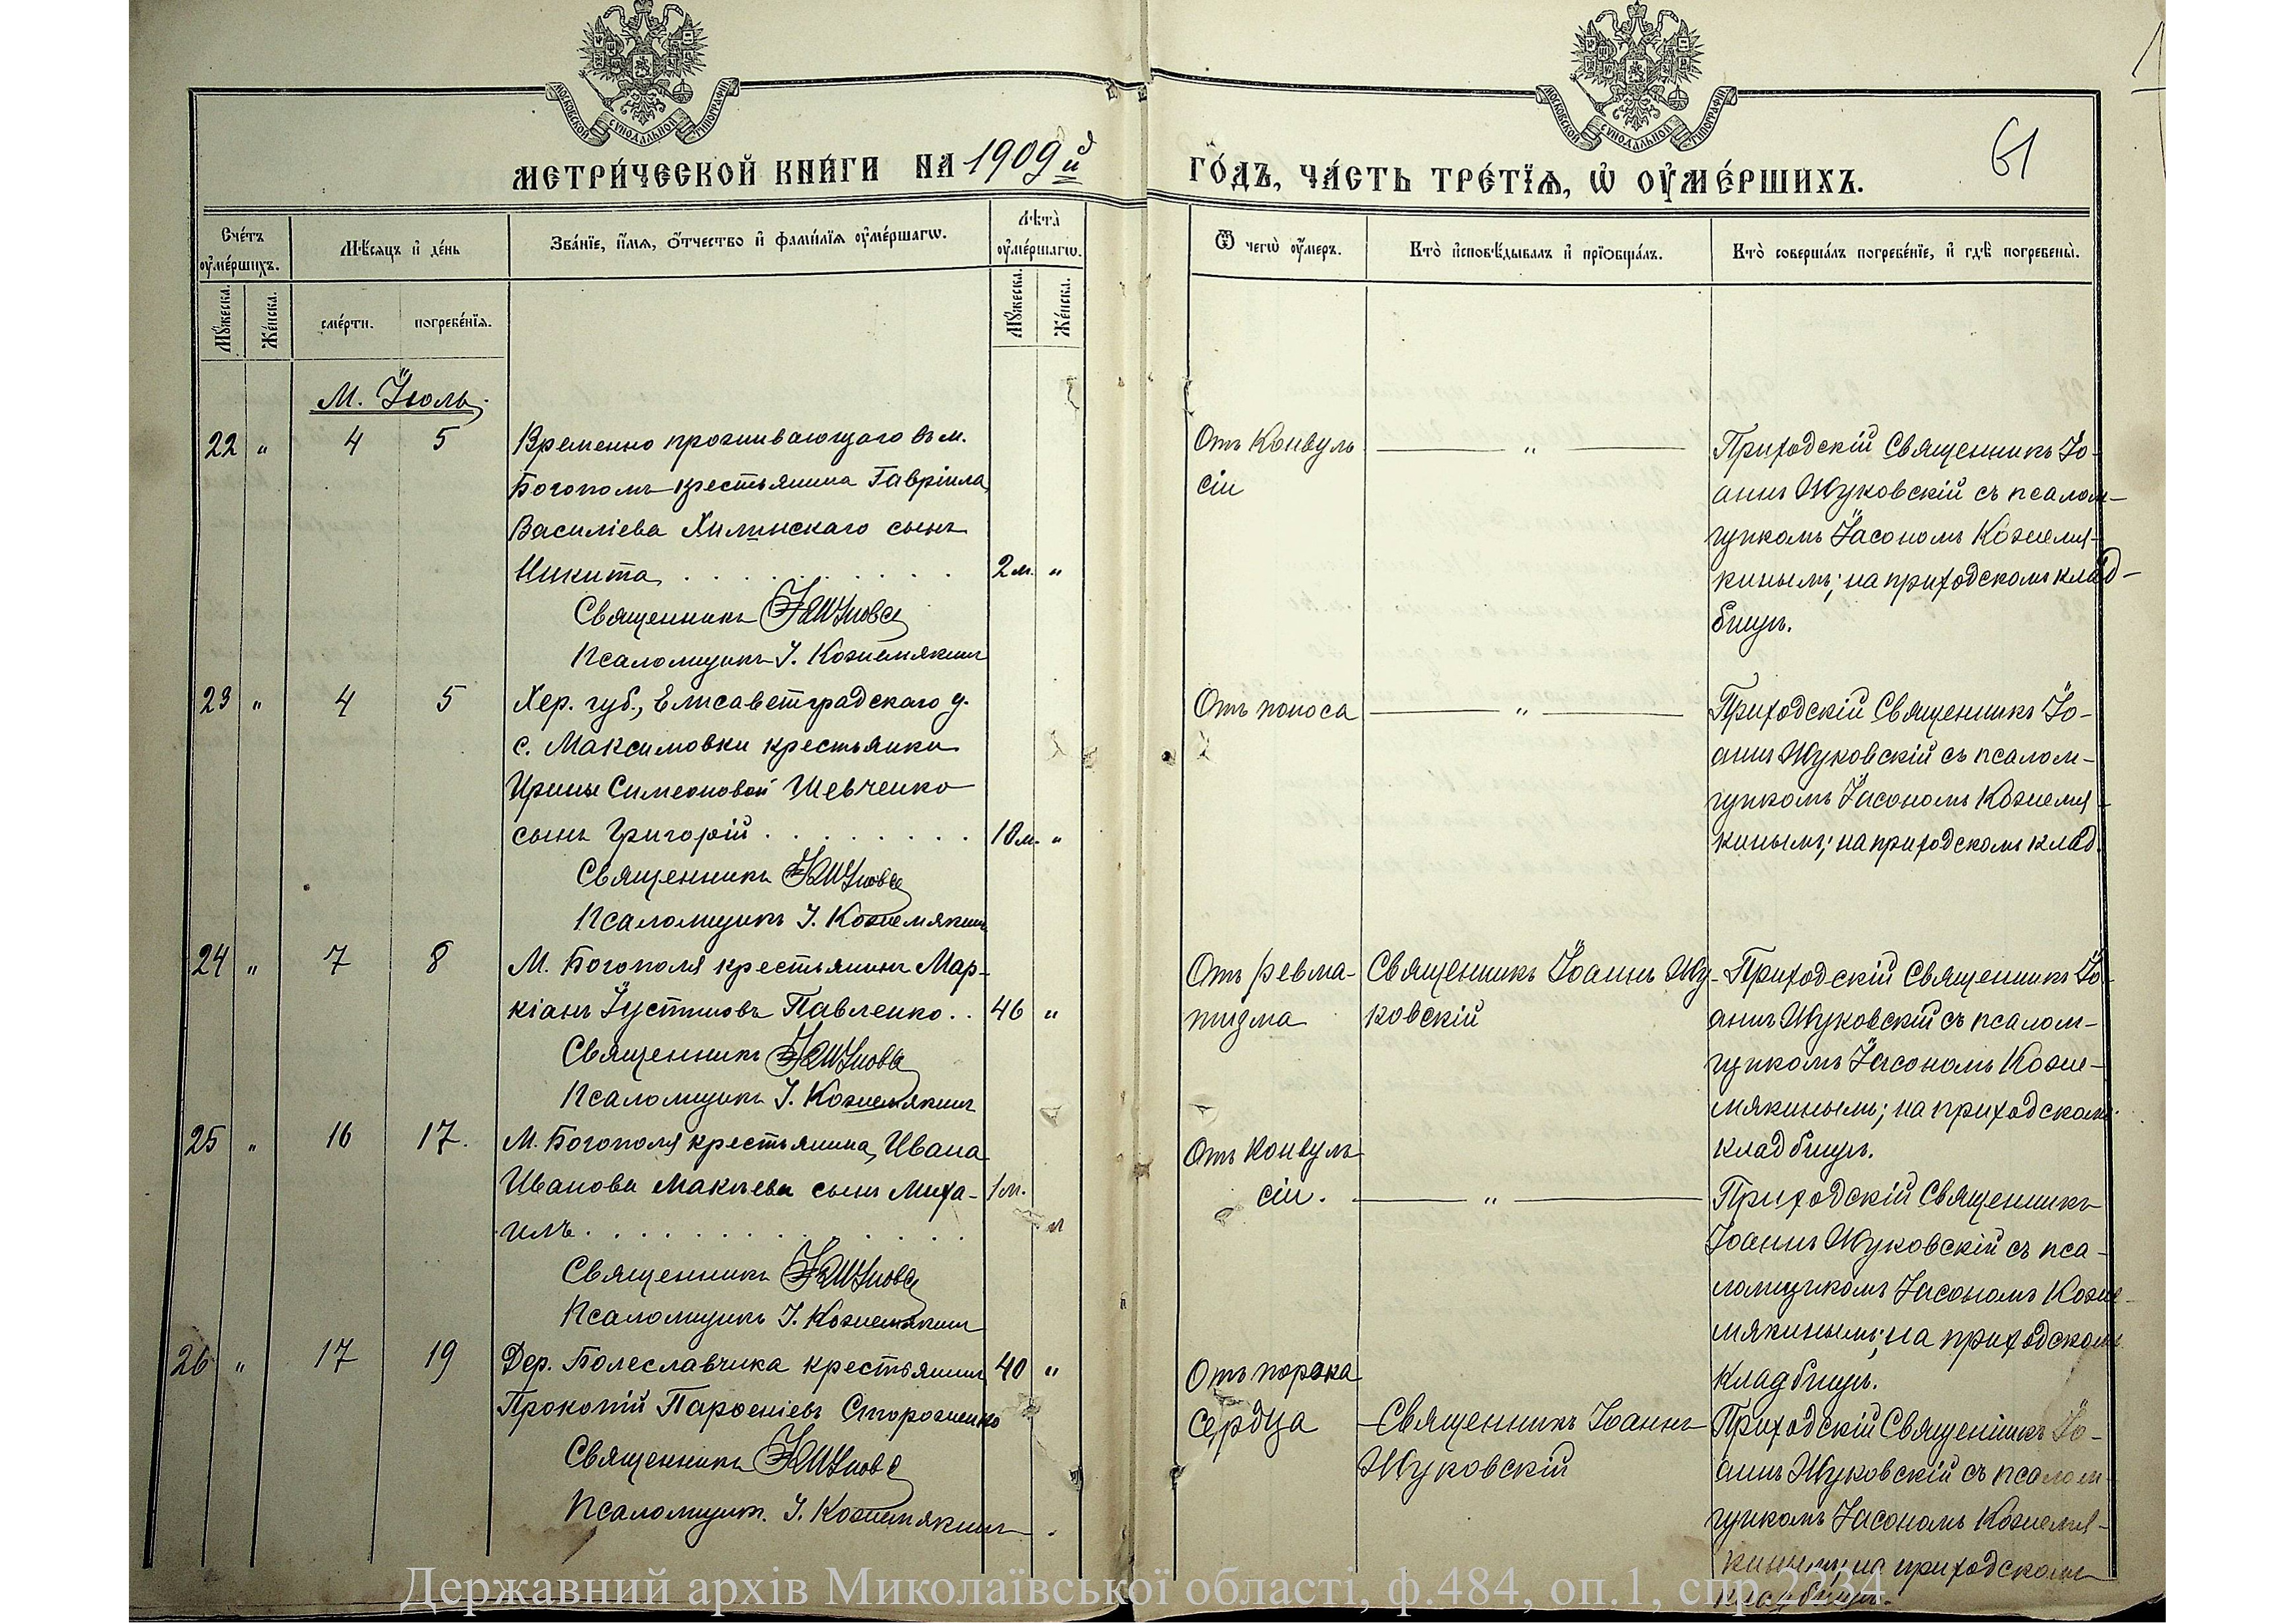 МОСКОВСКОЙ СУНОДАЛЬНОЙ ТИПОГРАФІИ
МОСКОВСКОЙ СУНОДАЛЬНОЙ ТИПОГРАФІИ
МЕТРИ́ЧЕСКОЙ КНИ́ГИ НА 1909й
ГО́ДЪ, ЧА́СТЬ ТРЕ́ТЇѦ, Ѡ ОУМЕ́РШИХЪ.
61
Сче́тъ оумершихъ.
Мѣсяцъ и де́нь
Зва́нїе, имѧ, отчество и фами́лїѧ оуме́ршагѡ.
Лѣта̀ оуме́ршагѡ.
Ѿ чегѡ̀ оумеръ.
Кто̀ исповѣ́дывалъ и прїобща́лъ.
Кто̀ соверша́лъ погребе́нїе, и гдѣ̀ погребены̀.
Мꙋжеска.
Же́нска.
сме́рти.
погребе́нїѧ.
Мꙋжеска.
Же́нска.
М. Іюль.
22 " 4 5 Временно проживающаго въ м.
Богополь крестьянина Гавріила
Василіева Хилинскаго сынъ
Никита 2 м. "
Священникъ
Псаломщикъ І. Кожемякинъ
Отъ Конвуль
сіи
"
Приходскій Священникъ Іо-
аннъ Жуковскій съ псалом-
щикомъ Іасономъ Кожемя-
кинымъ; на приходскомъ клад-
бищѣ.
23 " 4 5 Хер. губ., Елисаветградскаго у.
с. Максимовки крестьянки
Ирины Симеоновой Шевченко
сынъ Григорій 10 м. "
Священникъ
Псаломщикъ І. Кожемякинъ
Отъ поноса
"
Приходскій Священникъ Іо-
аннъ Жуковскій съ псалом-
щикомъ Іасономъ Кожемя-
кинымъ; на приходскомъ клад.
24 " 7 8 М. Богополя крестьянинъ Мар-
кіанъ Іустиновъ Павленко.. 46 "
Священникъ
Псаломщикъ І. Кожемякинъ
Отъ ревма-
тизма
Священникъ Іоаннъ Жу-
ковскій
Приходскій Священникъ Іо-
аннъ Жуковскій съ псалом-
щикомъ Іасономъ Коже-
мякинымъ; на приходскомъ
кладбищѣ.
25 " 16 17. М. Богополя крестьянина Ивана
Иванова сынъ Миха- 1 м.
илъ "
Священникъ
Псаломщикъ І. Кожемякинъ
Отъ Конвуль
сіи.
"
Приходскій Священникъ
Іоаннъ Жуковскій съ пса-
ломщикомъ Іасономъ Коже-
мякинымъ; на приходскомъ
кладбищѣ.
26 " 17 19 Дер. Болеславчика крестьянинъ 40 "
Прокопій Парѳеніевъ Стороженко
Священникъ
Псаломщик. І. Кожемякинъ
Отъ порока
сердца
Священникъ Іоаннъ
Жуковскій
Приходскій Священникъ Іо-
аннъ Жуковскій съ псалом-
щикомъ Іасономъ Кожемя-
кинымъ; на приходскомъ
кладбищѣ.
Державний архів Миколаївської області, ф.484, оп.1, спр.2234